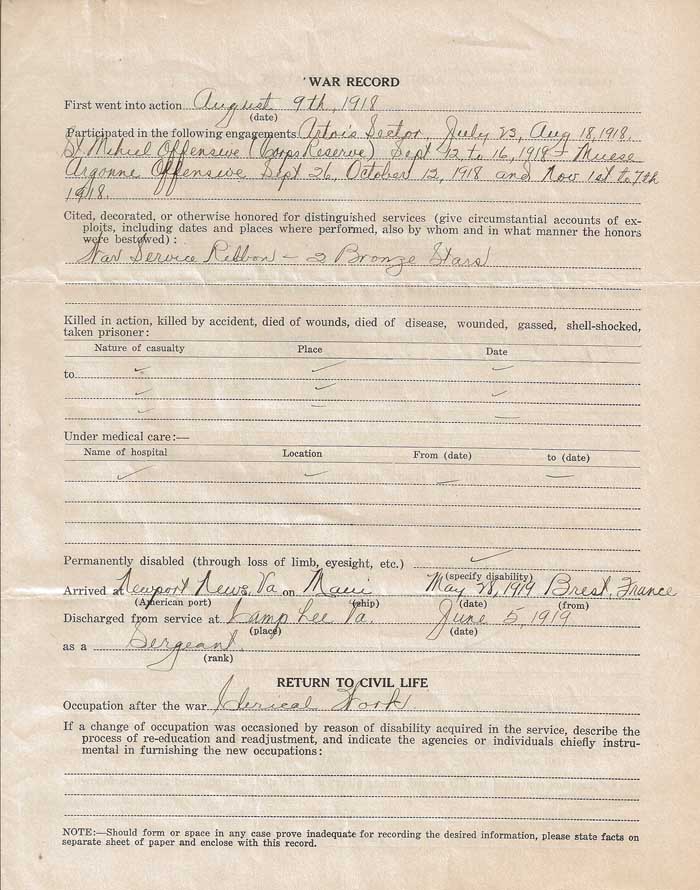 WAR RECORD
First went into action August 9th, 1918
(date)
Participated in the following engagements Artois Sector, July 23, Aug 18, 1918.
St Mihiel Offensive (Corps Reserve) Sept 12 to 16, 1918 - Muese
Argonne Offensive Sept 26, October 12, 1918 and Nov 1st to 7th
1918.
Cited, decorated, or otherwise honored for distinguished services (give circumstantial accounts of ex-
ploits, including dates and places where performed, also by whom and in what manner the honors
were bestowed) :
War Service Ribbon - 2 Bronze Stars
Killed in action, killed by accident, died of wounds, died of disease, wounded, gassed, shell-shocked,
taken prisoner:
Nature of casualty Place Date
to
Under medical care:—
Name of hospital Location From (date) to (date)
Permanently disabled (through loss of limb, eyesight, etc.)
(specify disability)
Arrived at Newport News, Va on Maui May 28, 1919 Brest, France
(American port) (ship) (date) (from)
Discharged from service at Camp Lee Va. June 5, 1919
(place) (date)
as a Sergeant.
(rank)
RETURN TO CIVIL LIFE
Occupation after the war Clerical Work
If a change of occupation was occasioned by reason of disability acquired in the service, describe the
process of re-education and readjustment, and indicate the agencies or individuals chiefly instru-
mental in furnishing the new occupations:
NOTE:—Should form or space in any case prove inadequate for recording the desired information, please state facts on
separate sheet of paper and enclose with this record.